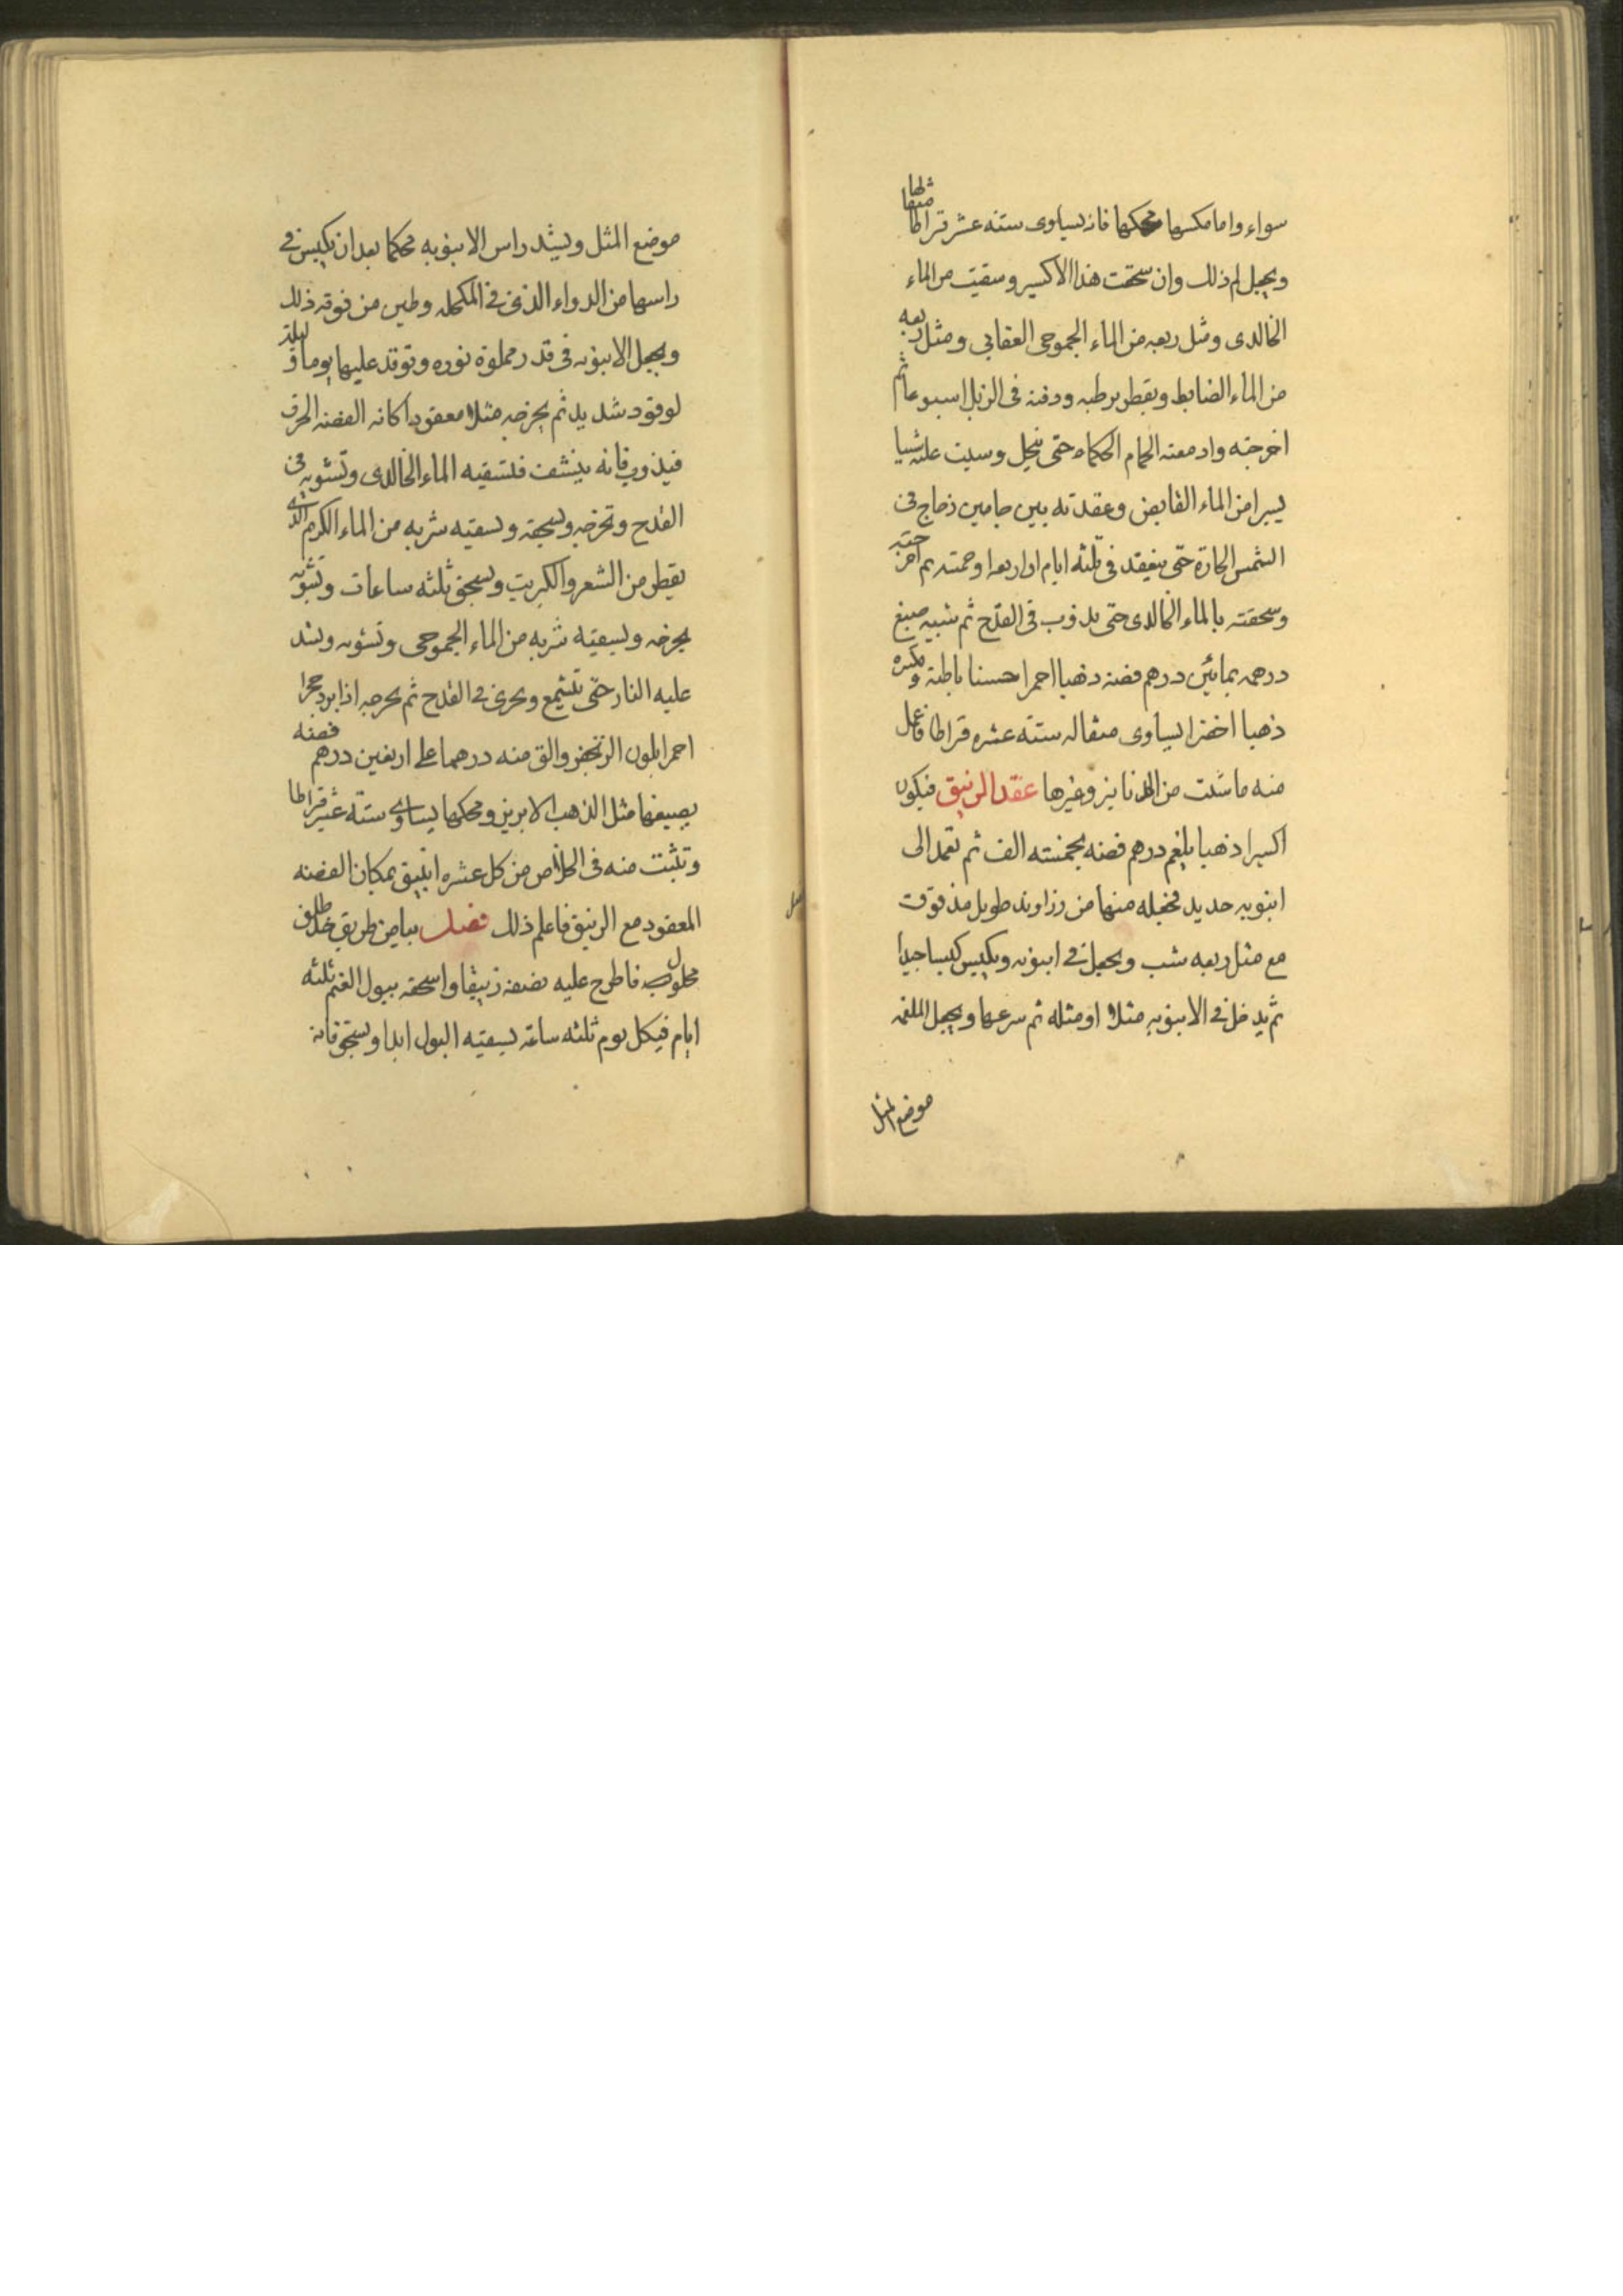 سواء واما مكسرها محكها فانه يساوى ستة عشر قراطا
مثقالها
ويجبل لم ذلك وان سحقت هذا الاكسير وسقيت من الماء
الخالدى ومثل ربعه من الماء الجموحى العقابى ومثل ربعه
من الماء الضابط ويقطر برطبه ودفنه فى الزبل اسبوعا ثم
اخرجته واد معته الحمام الحكماء حتى ينحل وسيت عليه شيا
يسيرا من الماء القابض وعقدته بين جامين زجاج فى
الشمس الحارة حتى ينعقد فى ثلثه ايام او اربعه او خمسه ثم اخرجته
وسحقته بالماء الخالدى حتى يذوب فى القدح ثم شبيه صبغ
درهمه بمائين درهم فضه ذهبا احمرا حسنا باطنه ومكسره
ذهبا اخضرا يساوى مثقاله ستة عشره قراطا فاعمل
منه ما شئت من الدنانيز وغيرها عقد الزيبق فيكون
اكسيرا ذهبيا يلغم درهم فضه بخمسته الف ثم تعمد الى
انبوبه حديد فخبله منها من رزاوند طويل مذقوقت
مع مثل ربعه شب ويجعل فى انبوبه ويكبس كبسا جيدا
ثم يدخل فى الانبوبه مثلا او مثله ثم سرعها ويجعل الملغمه
موضع المثل
موضع المثل ويشد راس الانبوبه محكما بعد ان يكبس فى
راسها من الدواء الذى فى المكحله وطين من فوقه ذلك
ويجعل الانبوبه فى قدر مملوة نوره وتوقد عليها يوما و ليلة
لوقود شديد ثم يخرجه مثلا معقودا كانه الفضه الحرق
فيذوب فانه ينشف فلتسقيه الماء الخالدى وتشويه فى
القدح وتخرجه ويسحقه ويسقيه شربه من الماء الكريم الذى
يقطر من الشعر والكبريت ويسحق ثلثه ساعات وتشويه
يخرجه ويسقيه شربه من الماء الجموحى وتشويه ويشد
عليه النار حتى يتشمع ويجرى فى القدح ثم يخرجه اذا برد حجرا
احمرا بلون الزنجفر والق منه درهما على اربعين درهم فضه
يصبغها مثل الذهب الابريز ومحكها يساوى ستة عشر قراطا
وتثبت منه فى الخلاص من كل عشره اثليق بمكان الفضه
المعقود مع الزيبق فاعلم ذلك فصل بياض طريق خذ طلق
محلوب فاطرح عليه نصفه زيبقا واسحقه ببول الغنم ثلثه
ايام فيكل يوم ثلثه ساعة يسقيه البول ابدا ويسحق فانه